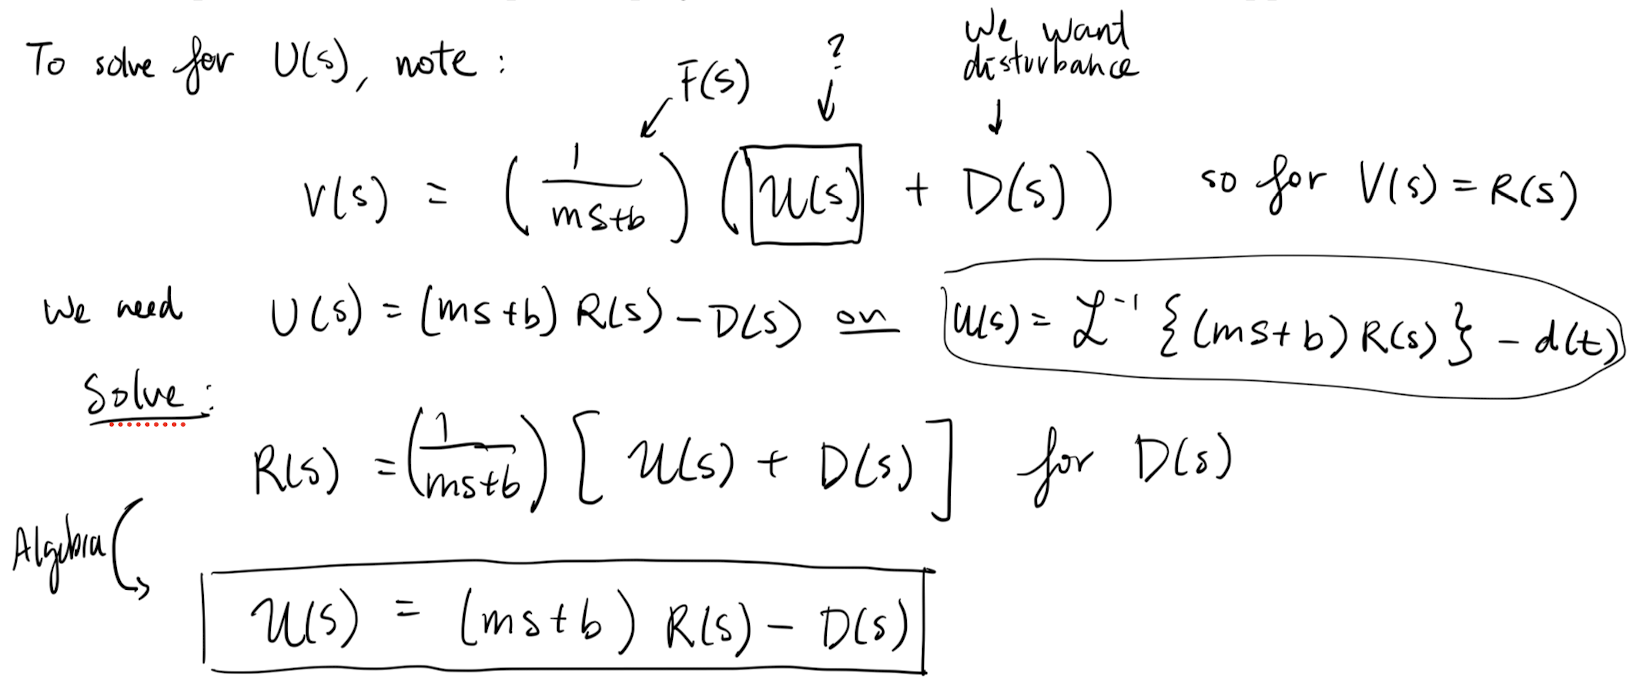 To solve for U(s), note :
F(s)
?
We want
disturbance
V(s) = (1/(ms+b)) (U(s) + D(s)) so for V(s) = R(s)
We need U(s) = (ms+b) R(s) - D(s) on U(s) = ℒ⁻¹ {(ms+b) R(s)} - d(t)
Solve:
R(s) = (1/(ms+b)) [U(s) + D(s)] for D(s)
Algebra
U(s) = (ms+b) R(s) - D(s)